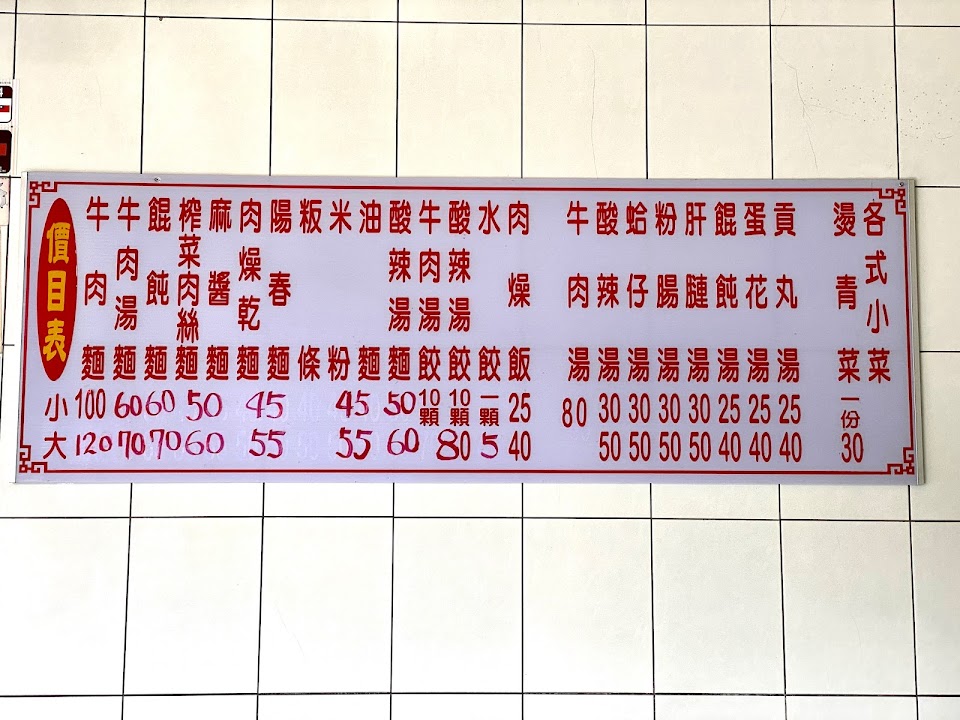 價目表
牛肉麵
牛肉湯麵
餛飩麵
榨菜肉絲麵
麻醬麵
肉燥乾麵
陽春麵
粄條
米粉
油麵
酸辣湯麵
牛肉湯餃
酸辣湯餃
水餃
肉燥飯
牛肉湯
酸辣湯
蛤仔湯
粉腸湯
肝湯
餛飩湯
蛋花湯
貢丸湯
燙青菜
各式小菜
小 100 60 60 50 45 45 50 10顆 10顆 一顆 25 80 30 30 30 30 25 25 25 一份
大 120 70 70 60 55 55 60 80 5 40 50 50 50 50 40 40 40 30